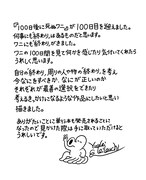 『100日後に死ぬワニ』が100日目を迎えました。
何事にも終わりはあるものだと思います。
ワニにも終わりがきました。
ワニの100日間を見て何かを感じたり気付いてくれたら
うれしく思います。
自分の終わり、周りの人や物の「終わり」を考え
今なにをすべきか、なにが正しいのか
それぞれが最善の選択をできたり
考えるきっかけになるような作品にしたいと思い
描きました。
ありがたいことに単行本も発売されることに
なったので見かけた際は手に取っていただけたら
うれしいです。
Yuuki
Kikuchi